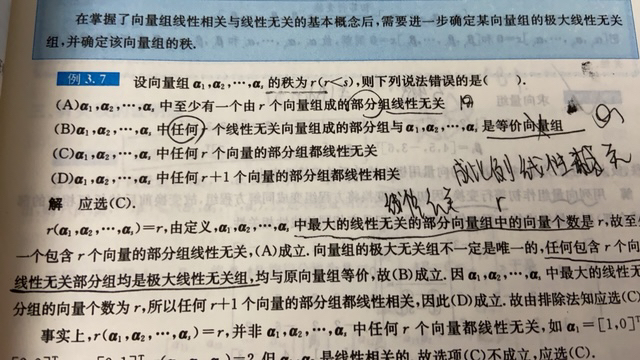 在掌握了向量组线性相关与线性无关的基本概念后,需要进一步确定某向量组的极大线性无关
组,并确定该向量组的秩.
例 3.7 设向量组 α₁,α₂,⋯,αₛ 的秩为 r(r<s),则下列说法错误的是( ).
(A)α₁,α₂,⋯,αₛ 中至少有一个由 r 个向量组成的部分组线性无关
(B)α₁,α₂,⋯,αₛ 中任何 r 个线性无关向量组成的部分组与 α₁,α₂,⋯,αₛ 是等价向量组
(C)α₁,α₂,⋯,αₛ 中任何 r 个向量的部分组都线性无关
(D)α₁,α₂,⋯,αₛ 中任何 r+1 个向量的部分组都线性相关
成比例 线性
线性无关 r
解 应选(C).
r(α₁,α₂,⋯,αₛ)=r,由定义,α₁,α₂,⋯,αₛ 中最大的线性无关的部分向量组中的向量个数是 r,故至
一个包含 r 个向量的部分组线性无关,(A)成立.向量组的极大无关组不一定是唯一的,任何包含 r 个向
线性无关部分组均是极大线性无关组,均与原向量组等价,故(B)成立.因 α₁,α₂,⋯,αₛ 中最大的线性无
分组的向量个数为 r,所以任何 r+1 个向量的部分组都线性相关,因此(D)成立.故由排除法知应选(C)
事实上,r(α₁,α₂,⋯,αₛ)=r,并非 α₁,α₂,⋯,αₛ 中任何 r 个向量都线性无关,如 α₁=[1,0]ᵀ
)=2,但 是线性相关的,故选项(C)不成立,应选(C).